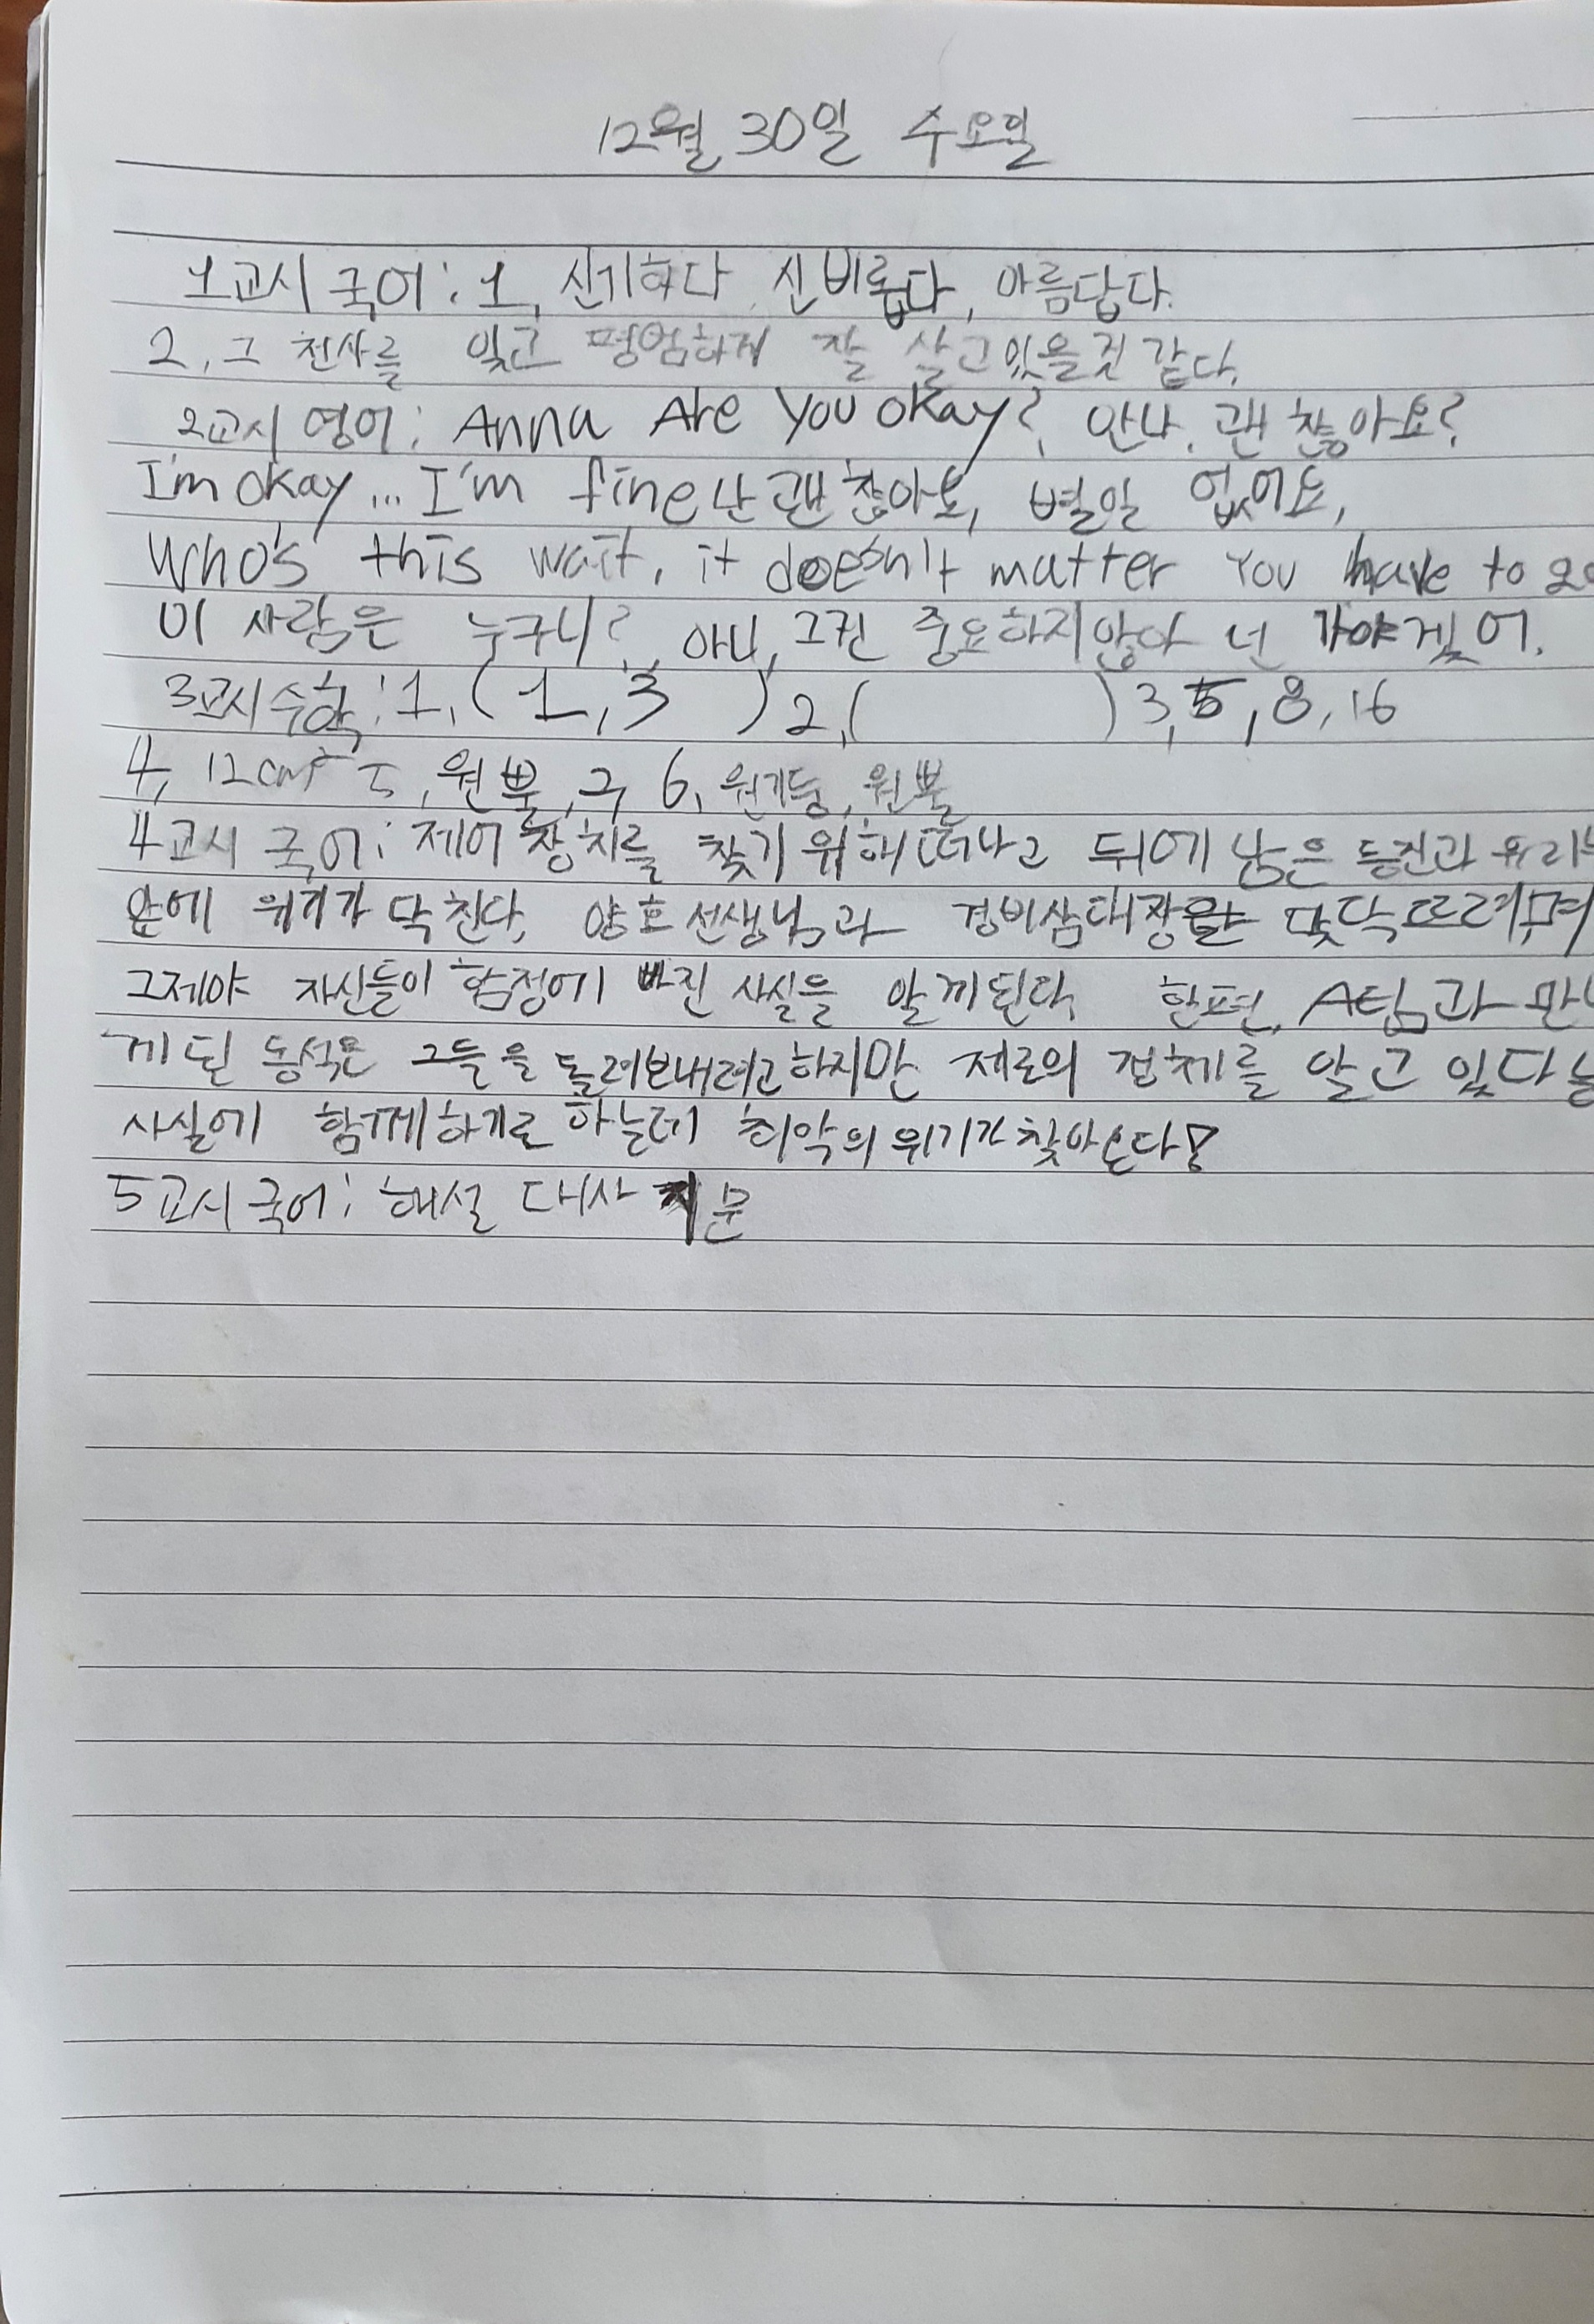 12월 30일 수요일
1교시 국어: 1, 신기하다, 신비롭다, 아름답다.
2, 그 천사를 잊고 평범하게 잘 살고있을것 같다.
2교시 영어: Anna Are You okay? 안나, 괜찮아요?
I'm okay... I'm fine 난 괜찮아요, 별일 없어요,
Who's this wait, it doesn't matter You have to
이 사람은 누구니? 아니, 그건 중요하지않아 넌 가야겠어.
3교시 수학: 1, (1,3 ) 2, ( ) 3, 5, 8, 16
4, 12cm² 5, 원뿔, 구 6, 원기둥, 원뿔
4교시 국어: 제어 장치를 찾기 위해 떠나고 뒤에 남은 등진과 유리
앞에 위기가 닥친다, 양호선생님과 경비삼대장을 맞닥뜨려며
그제야 자신들이 함정에 빠진 사실을 알게된다, 한편, A팀과 만
게 된 동석은 그들을 돌려보내려고하지만 제로의 정체를 알고 있다는
사실에 함께하기로 하는데 최악의 위기가 찾아온다!
5교시 국어: 해설 대사 지문